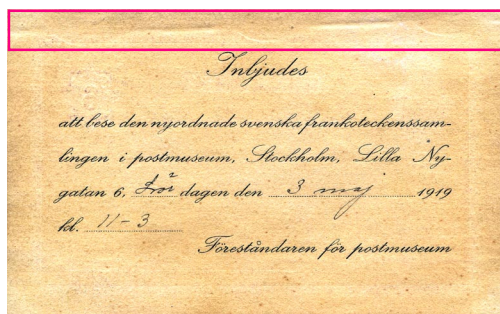 Inbjudes
att bese den nyordnade svenska frankoteckenssam-
lingen i postmuseum, Stockholm, Lilla Ny-
gatan 6, lör dagen den 3 maj 1919
kl. 11-3
Föreståndaren för postmuseum